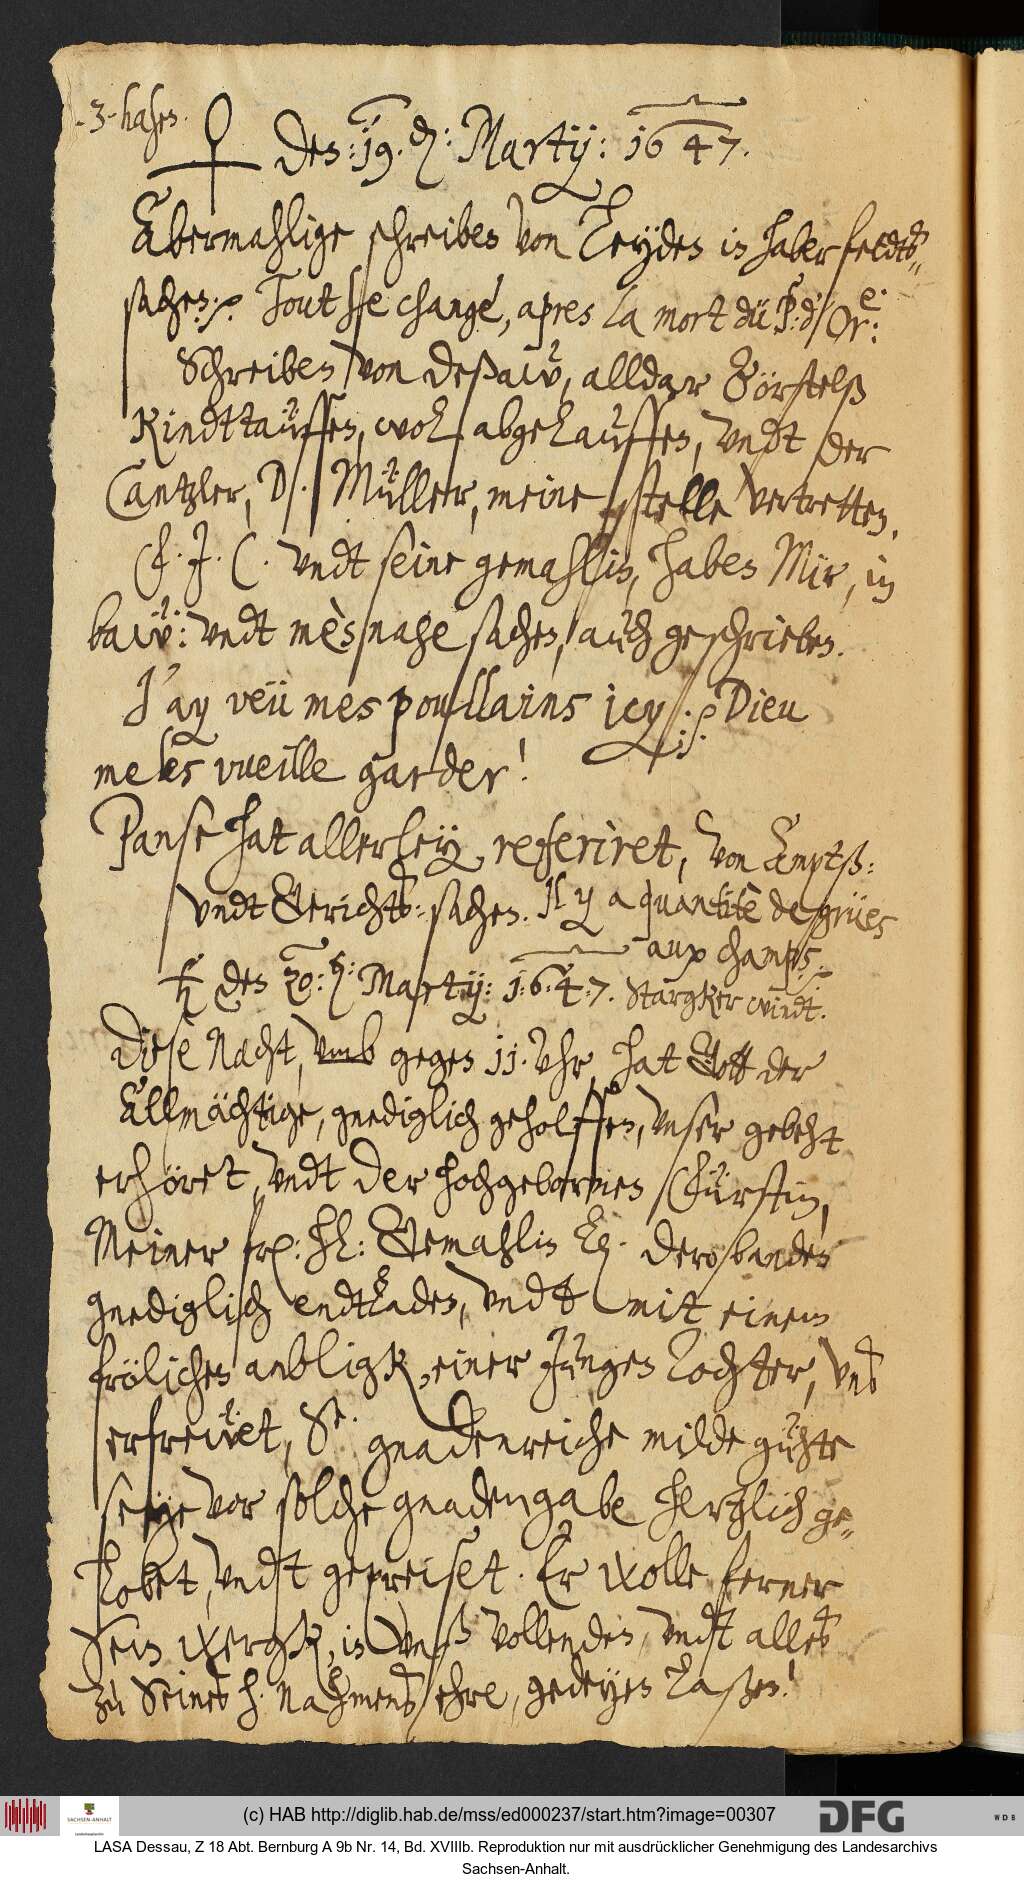 3 hasen.
♀ den: 19. den: Martij: 1647.
Abermahlige schreiben von Leyden in haberfeldts
sachen. Tout s'e changè, apres la mort du P: d'Or:e:
Schreiben von Deßaw, alldar Börstelß
Kindttauffen, wol abgelauffen, vndt der
Cantzler, D. Müller, meine stelle vertretten.
F. J. C. vndt seine gemahlin, haben Mir, in
baw: vndt mèsnage sachen, auch geschrieben.
J'ay veü mes poullains icy. Dieu
me les vueille garder!
Panse hat allerley referiret, von Amptß:
vndt Gerichts: sachen. Il y a quantitè de grües
aux champs.
♄ den 20: den: Martij: 1.6.4.7. Starcker windt.
Diese Nacht, vmb gegen 11. Vhr, hat Gott der
Allmächtige, gnediglich geholffen, vnser gebeht
erhöret, vndt der hochgebornen Fürstin,
Meiner frl: hl: Gemahlin Ld. dero banden
gnediglich endtladen, vndt mit einem
frölichen anbligk, einer Jungen Tochter, vnß
erfrewet, Se. gnadenreiche milde gühte
seye vor solche gnadengabe hertzlich ge-
lobet, vndt gepreiset. Er wolle ferner
Sein wergk, in vnß vollenden, vndt alles
zu Seines h. Nahmens ehre, gedeyen laßen!
(c) HAB http://diglib.hab.de/mss/ed000237/start.htm?image=00307
SACHSEN-ANHALT
DFG
WDB
LASA Dessau, Z 18 Abt. Bernburg A 9b Nr. 14, Bd. XVIIIb. Reproduktion nur mit ausdrücklicher Genehmigung des Landesarchivs
Sachsen-Anhalt.